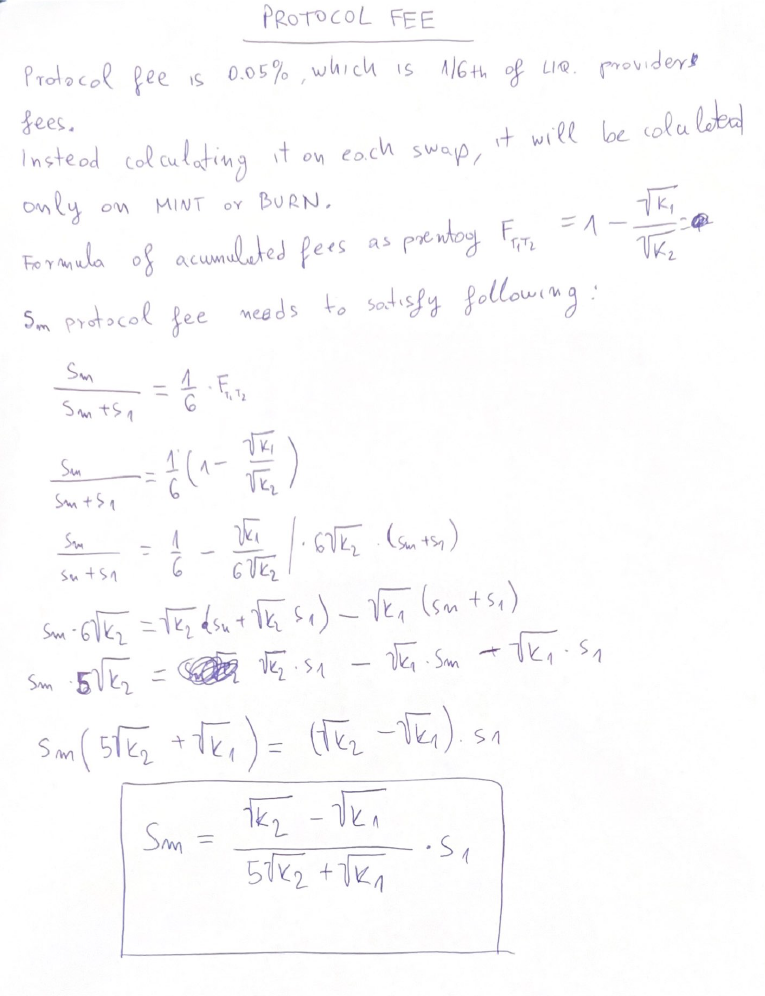 PROTOCOL FEE
Protocol fee is 0.05%, which is 1/6th of LIQ. providers
fees.
Instead calculating it on each swap, it will be calculated
only on MINT or BURN.
Formula of acumulated fees as prentog F_{T₁T₂} = 1 - √K₁/√K₂ =
Sm protocol fee needs to satisfy following:
Sm/(Sm + S1) = 1/6 · F_{T₁T₂}
Sm/(Sm + S1) = 1/6 (1 - √K₁/√K₂)
Sm/(Sm + S1) = 1/6 - √K₁/(6√K₂) / · 6√K₂ · (Sm + S1)
Sm · 6√K₂ = √K₂ (Sm + √K₂ S1) - √K₁ (Sm + S1)
Sm · 5√K₂ = √K₂ · S1 - √K₁ · Sm - √K₁ · S1
Sm (5√K₂ + √K₁) = (√K₂ - √K₁) · S1
Sm = (√K₂ - √K₁)/(5√K₂ + √K₁) · S1